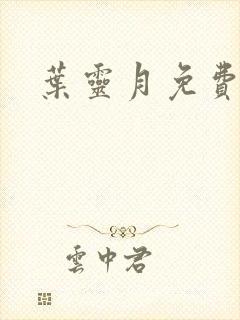 葉靈月免費
雲中君